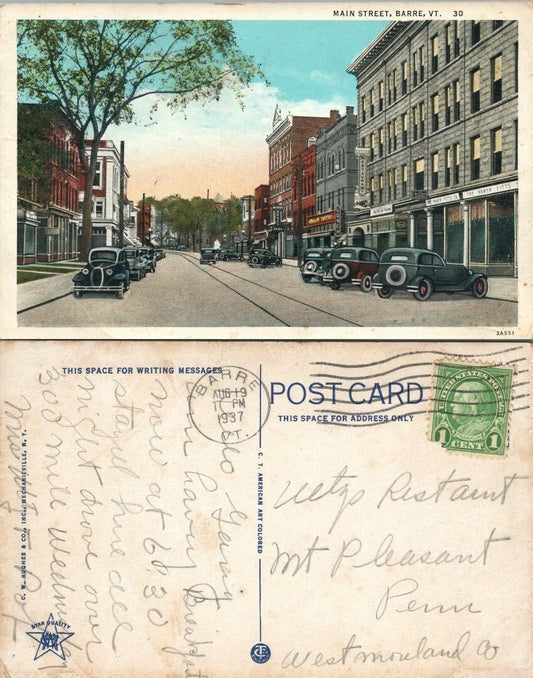 MAIN STREET, BARRE, VT. 30
3A551
THIS SPACE FOR WRITING MESSAGES
POST CARD
THIS SPACE FOR ADDRESS ONLY
BARRE
AUG 19
PM
1937
VT.
UNITED STATES POSTAGE
1 CENT 1
C. T. AMERICAN ART COLORED
C. W. HUGHES & CO., INC., MECHANICVILLE, N. Y.
STAR QUALITY
Hello Gang
am having Breakfast
now at 6030
stayed here all
night drove over
300 mile Wed
Metzs Restaurnt
Mt Pleasant
Penn
Westmorland Co